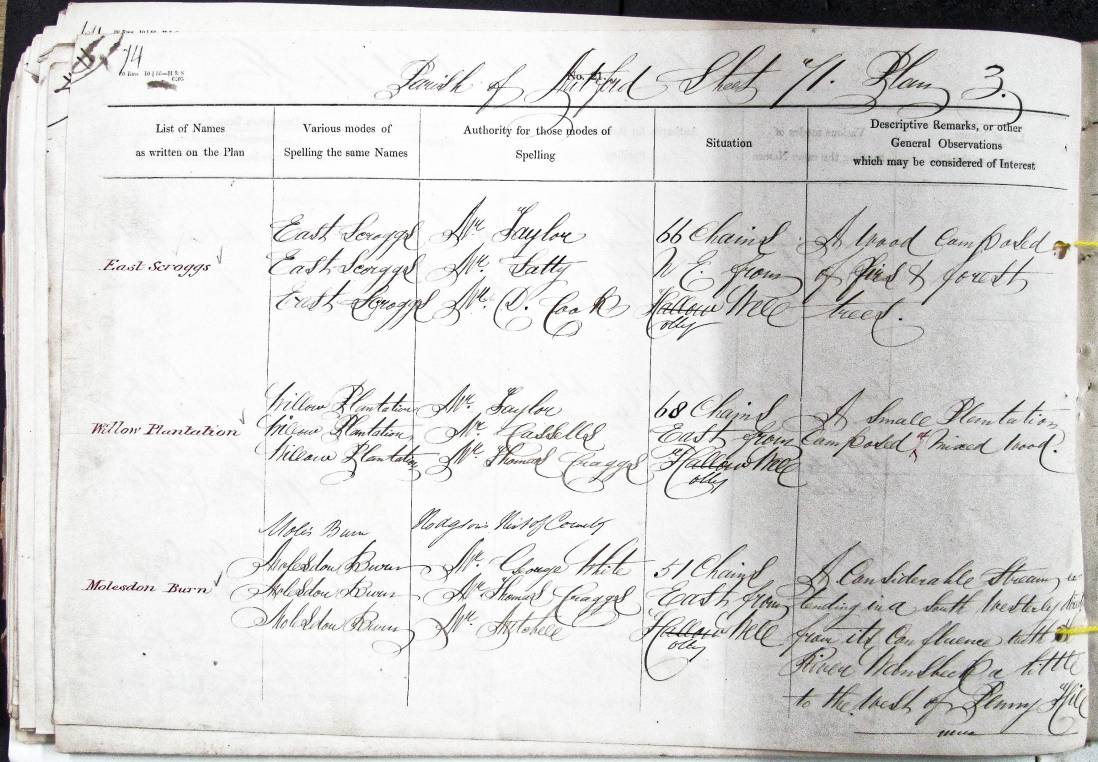 74
No. 21.
Parish of Mitford Sheet 71. Plan 3.
List of Names
as written on the Plan
Various modes of
Spelling the same Names
Authority for those modes of
Spelling
Situation
Descriptive Remarks, or other
General Observations
which may be considered of Interest
East Scroggs
East Scroggs
East Scroggs
East Scroggs
Mr. Taylor
Mr.
Mr. D. Cook
66 Chains
N E. from
Hallow Well
olly
A Wood Composed
of Firs & forest
trees.
Willow Plantation
Willow Plantation
Willow Plantation
Willow Plantation
Mr. Taylor
Mr. Cassells
Mr. Thomas Craggs
68 Chains
East from
Hallow Well
olly
A Small Plantation
Composed of mixed Wood.
Molesdon Burn
Molis Burn
Molesdon Burn
Molesdon Burn
Molesdon Burn
Hodgson's Hist of County
Mr. George White
Mr. Thomas Craggs
Mr. Mitchell
51 Chains
East from
Hallow Well
olly
A Considerable Stream
tending in a South Westerly
from its Confluence with
River Wansbeck a little
to the West of Penny Hill